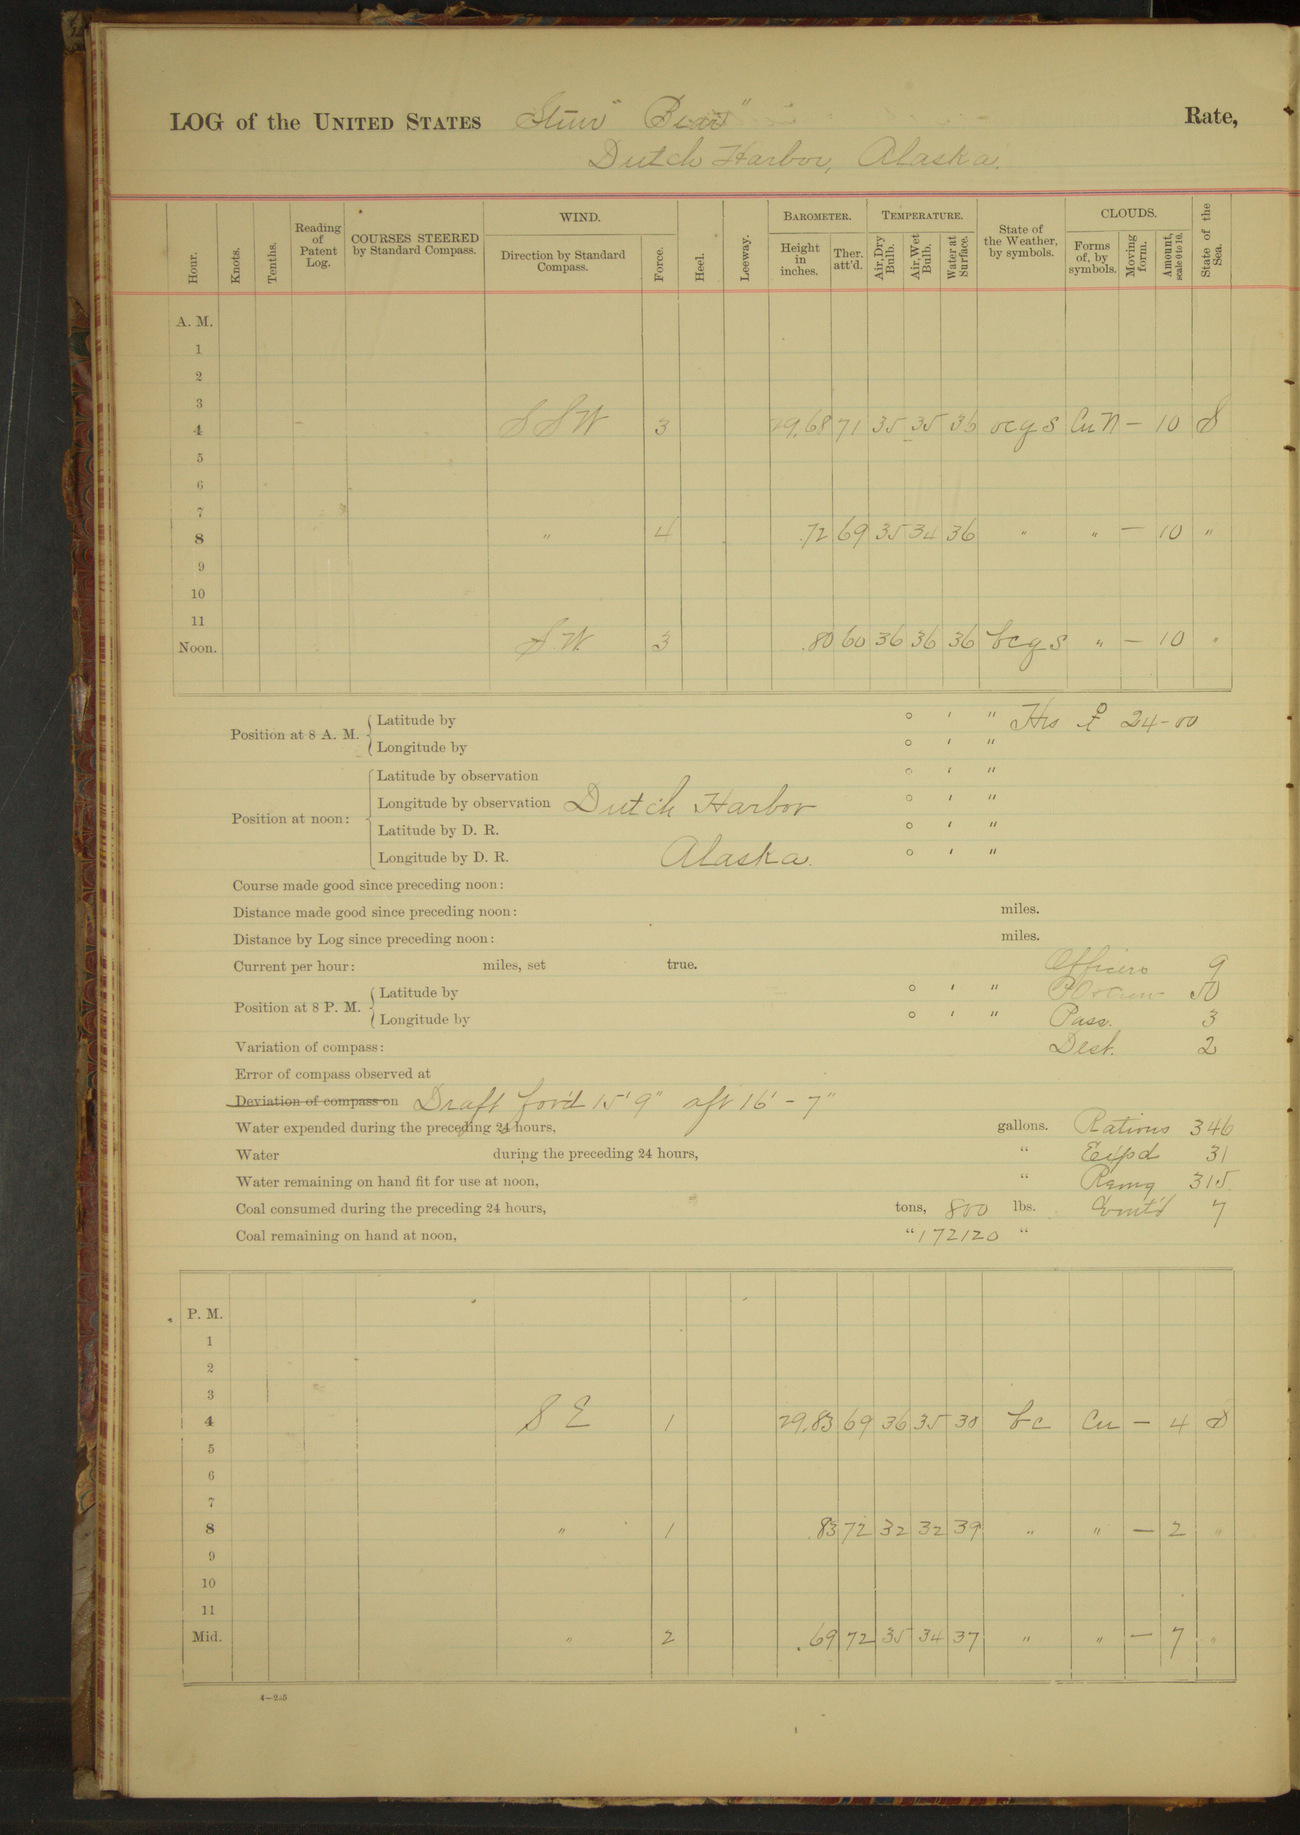 LOG of the UNITED STATES Stmr "Bear" Rate,
Dutch Harbor, Alaska.
Hour. Knots. Tenths. Reading of Patent Log. COURSES STEERED by Standard Compass. WIND. Direction by Standard Compass. Force. Heel. Leeway. BAROMETER. Height in inches. Ther. att'd. TEMPERATURE. Air, Dry Bulb. Air, Wet Bulb. Water at Surface. State of the Weather, by symbols. CLOUDS. Forms of, by symbols. Moving form. Amount, scale 0 to 10. State of the Sea.
A. M.
1
2
3
4 SSW 3 29.68 71 35 35 36 ocgs CuN — 10 S
5
6
7
8 " 4 .72 69 35 34 36 " " — 10 "
9
10
11
Noon. S.W. 3 .80 60 36 36 36 bcgs " — 10 "
Position at 8 A. M. Latitude by ° ' " Hrs 24-00
Longitude by ° ' "
Position at noon: Latitude by observation ° ' "
Longitude by observation Dutch Harbor ° ' "
Latitude by D. R. ° ' "
Longitude by D. R. Alaska. ° ' "
Course made good since preceding noon:
Distance made good since preceding noon: miles.
Distance by Log since preceding noon: miles.
Current per hour: miles, set true. Officers 9
Position at 8 P. M. Latitude by ° ' " 50
Longitude by ° ' " Pass. 3
Variation of compass: Dest. 2
Error of compass observed at
Deviation of compass on Draft for'd 15' 9" aft 16' - 7"
Water expended during the preceding 24 hours, gallons. Rations 346
Water during the preceding 24 hours, " Exp'd 31
Water remaining on hand fit for use at noon, " Remg 315
Coal consumed during the preceding 24 hours, tons, 800 lbs. Comt'd 7
Coal remaining on hand at noon, " 172120 "
P. M.
1
2
3
4 S E 1 29.83 69 36 35 38 bc Cu — 4 S
5
6
7
8 " 1 .83 72 32 32 39 " " — 2 "
9
10
11
Mid. " 2 .69 72 35 34 37 " " — 7 "